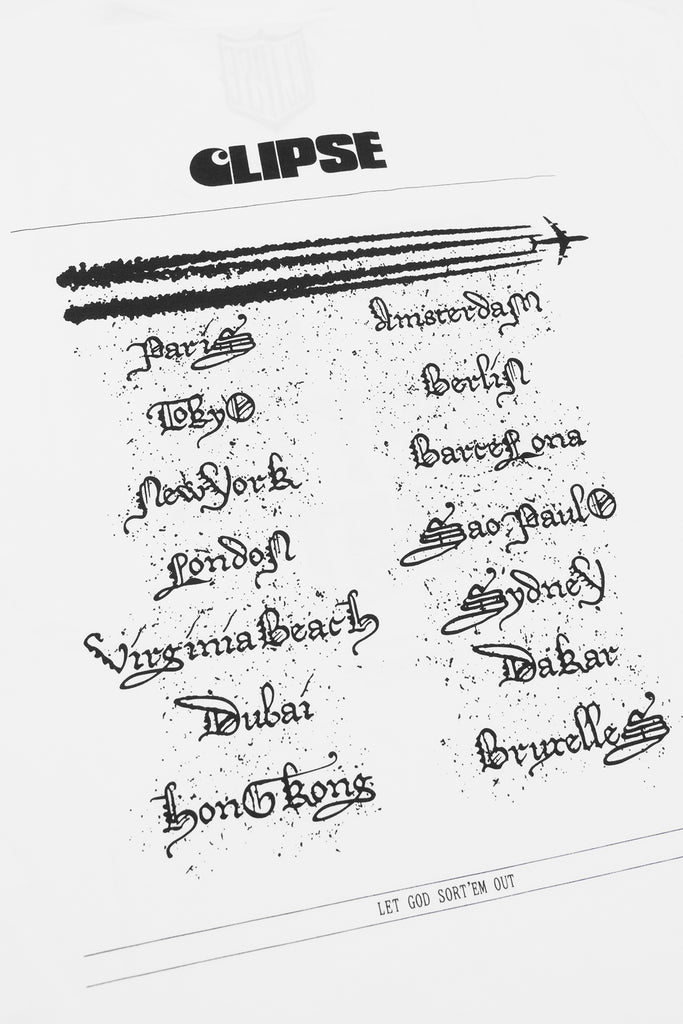 CLIPSE
Paris
Tokyo
New York
London
Virginia Beach
Dubai
Hong Kong
Amsterdam
Berlin
Barcelona
Sao Paulo
Sydney
Dakar
Bruxelles
LET GOD SORT'EM OUT